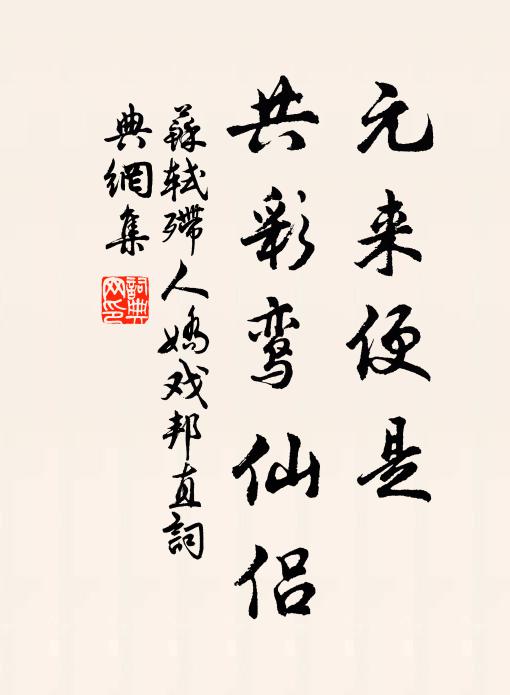 元来便是
共彩鸾仙侣
蘇軾殢人嬌戏邦直詞
典網集
詞典網印